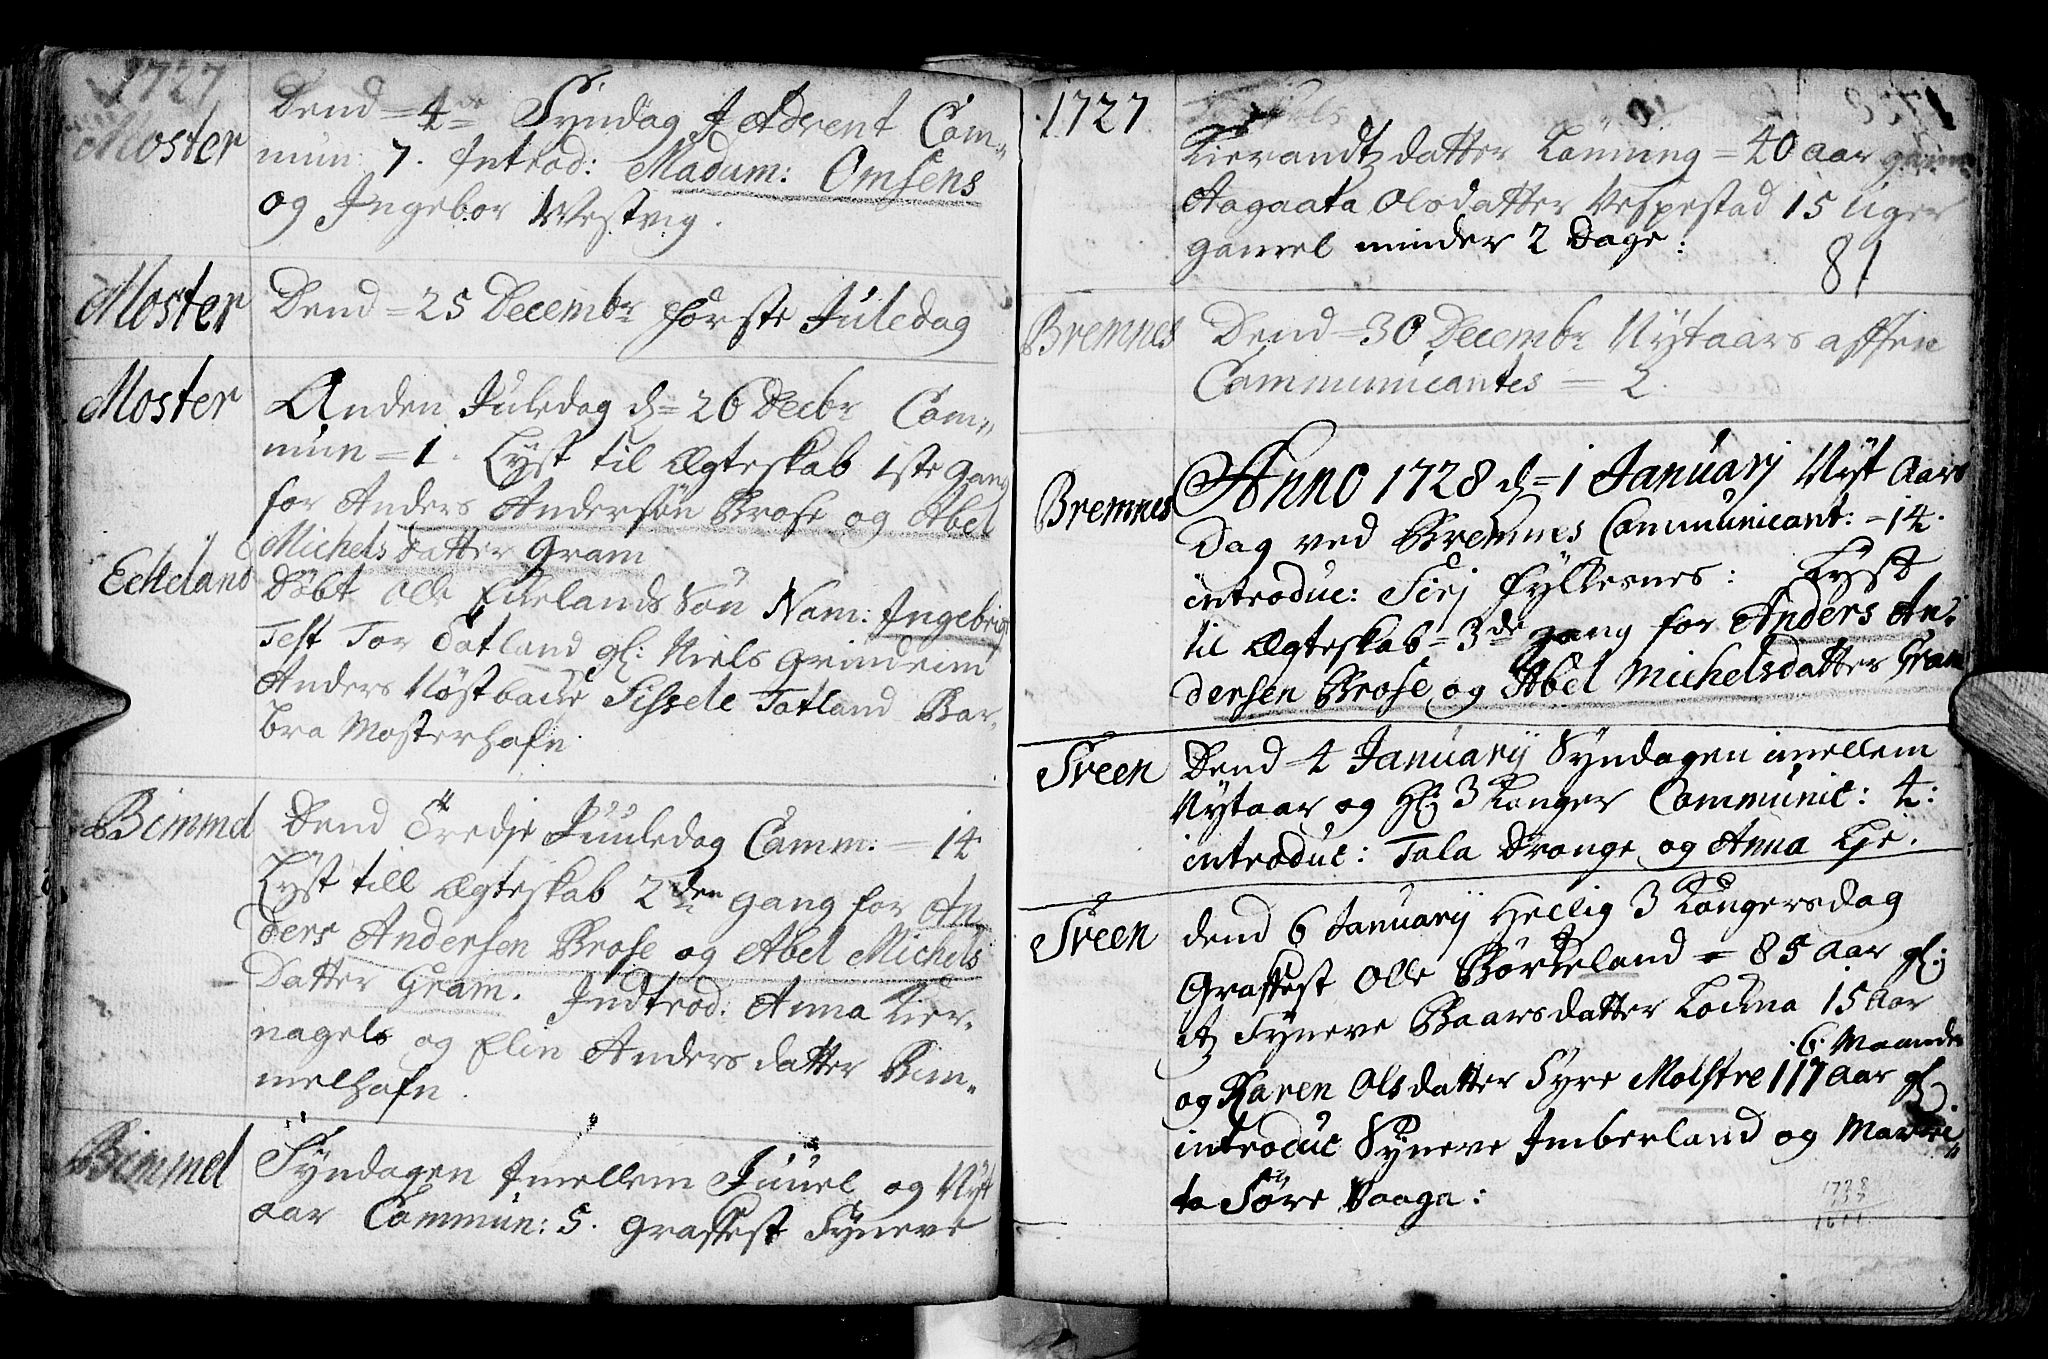 1727
Moster
Dend = 4de Syndag J Advent Com=
mun: 7. Introd: Madum: Omsens
og Ingebor Westvig.
Moster
Dend = 25 Decembr første Juledag
Moster
Anden Juledag d = 26 Decbr Com=
mun = 1. Lyst til Ægteskab 1ste Gang
for Anders Andersøn Brose og Abel
Michels Datter Gram
Eckeland
Døbt Olle Eckelands Søn Nam: Ingebrigt
Test Tor Totland gl: Niels Grindeim
Anders Nøstbacke Sissele Totland Bar=
bra Mosterhafn
Bimmel
Dend Tredje Juuledag Comm: = 14
Lyst till Ægteskab 2den Gang for An=
ders Andersen Brose og Abel Michels
Datter Gram. Indtrod. Anna Kier=
nagels og Elin Anders datter Bim=
melhafn.
Bimmel
Syndagen Imellem Juuel og Nyt
aar Commun: 5. Graffest Syneve
1727
Kierandtz datter Lønning = 40 aar gamel
Aagaata Olsdatter Vespestad 15 Uger
gamel minder 2 Dage:
81
Bremnes
Dend = 30 Decembr Nytaars afften
Communicantes = 2.
Bremnes
Anno 1728 d = 1 Januarj Nyt Aars
Dag ved Bremnes Communicant: = 14.
introduc: Sirj Fylkesnes: Lyst
til Ægteskab = 3de gang for Anders An=
dersen Brose og Abel Michelsdatter Gram
Sveen
Dend 4 Januarij Syndagen imellem
Nytaar og Hl: 3 Konger Communic: 4:
introduc: Tala Drange og Anna Lie.
Sveen
dend 6 Januarij Hellig 3 Kongersdag
Graffest Olle Børkeland = 85 Aar gl:
It Syneve Baarsdatter 15 Aar
6. Maander
og Karen Olsdatter Syre Molstre 117 Aar gl
introduc Syneve Imberland og Marri=
ta Søre Vaaga:
1728
117
1611